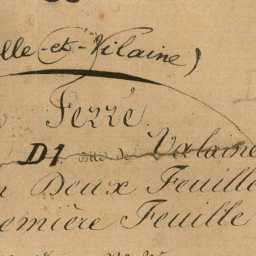 lle-et-Vilaine)
Ferré
D1 Valaine
n Deux Feuille
remière Feuille